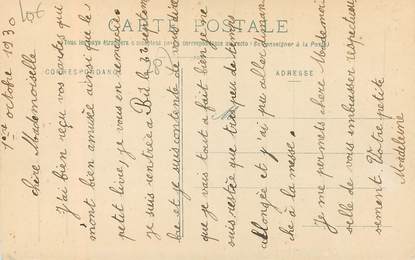 CARTE POSTALE
Tous les pays étrangers n'acceptent pas la correspondance au recto (Se renseigner à la Poste)
CORRESPONDANCE
ADRESSE
1ère octobre 1930
chère Mademoiselle
J'ai bien reçu vos cartes qui
m'ont bien amusée ainsi que le
petit livre, je vous en remercie.
je suis rentrée à le 22 septem
bre et je suis contente de vous dire
que je vais tout à fait bien je ne
suis restée que très peu de temps
allongée et j'ai pu aller diman
che à la messe.
Je me permets chère Mademoi
selle de vous embrasser respectueu
sement. Votre petite
Madeleine